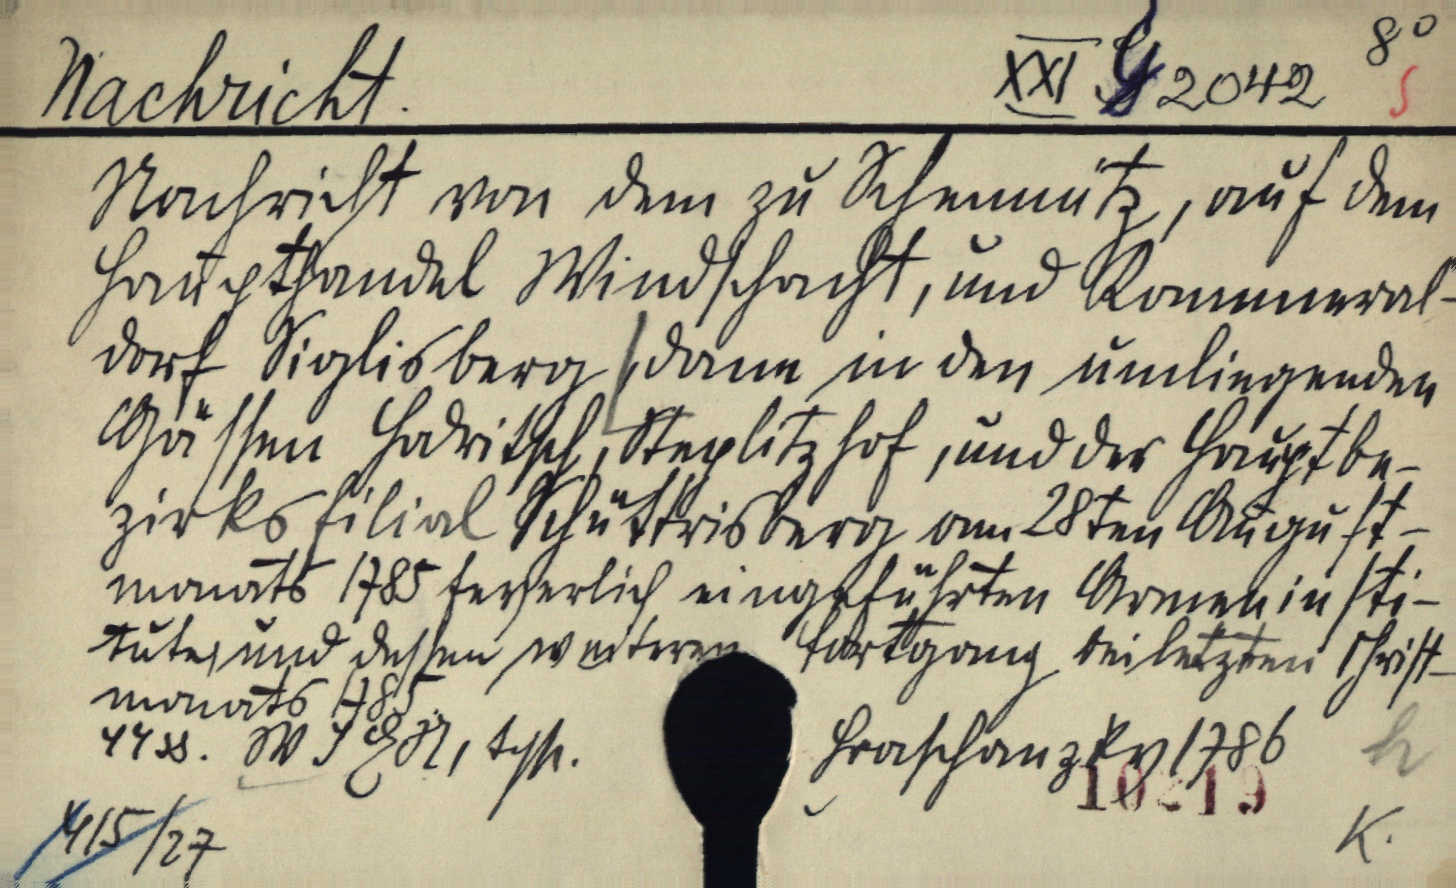 Nachricht. XXI G 2042 8°
Nachricht von dem zu Schemnitz, auf dem
Haupthandel Windschacht, und Kammeral-
dorf Siglisberg, dann in den umliegenden
Gässen Hodritsch, Steplitzhof, und der Hauptbe-
zirksfilial Schüttrisberg am 28ten August-
monats 1785 feyerlich eingeführten Armeninsti-
tute, und dessen weiteren Fortgang bei letzten Christ-
monats 1785.
44 SS. typ. 1786
10219
415/27 K.